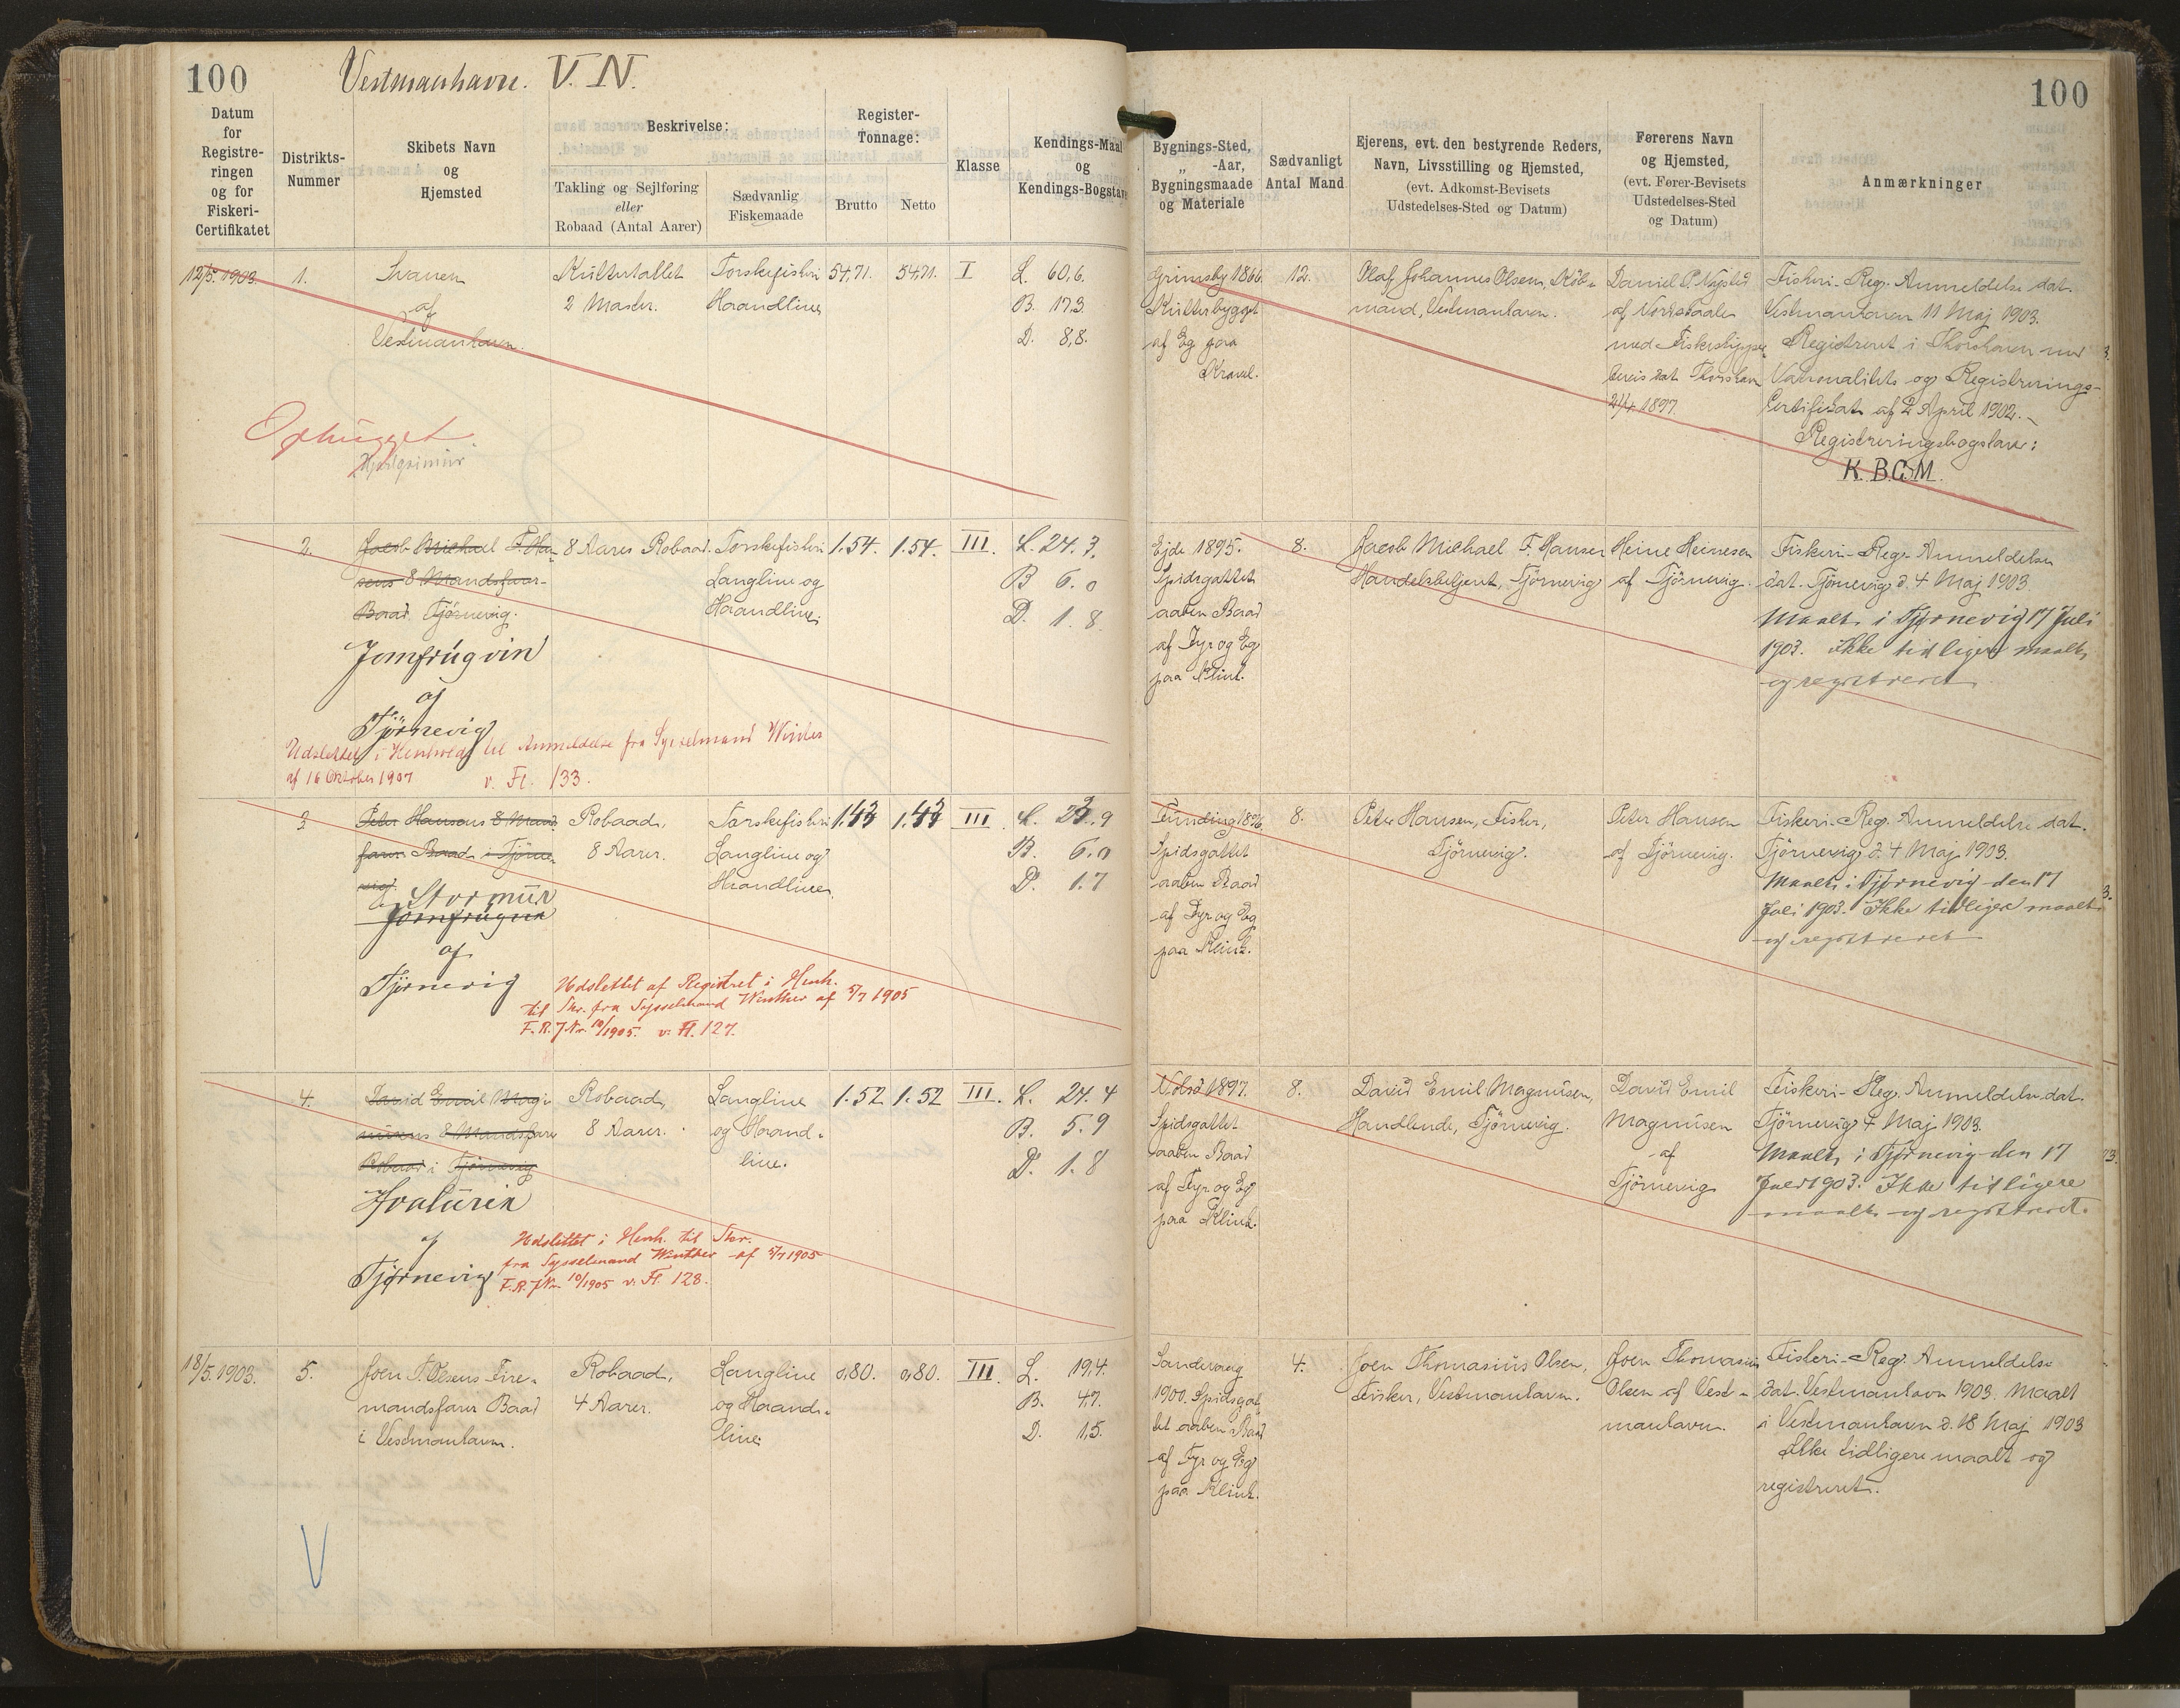 100
Vestmanhavn. V. N.
Datum
for
Registre-
ringen
og for
Fiskeri-
Certifikatet
Distrikts-
Nummer
Skibets Navn
og
Hjemsted
Beskrivelse:
Takling og Sejlføring
eller
Robaad (Antal Aarer)
Sædvanlig
Fiskemaade
Register-
Tonnage:
Brutto
Netto
Klasse
Kendings-Maal
og
Kendings-Bogstave
12/5. 1903.
1.
Svanen
af
Vestmanhavn.
Kuttertaklet
2 Master.
Torskefiskeri
Haandline
54,71.
54,71.
I
L. 60,6.
B. 17,3.
D. 8,8.
Ophugget
2.
Jacob Michael F. Han-
sens 8 Mandsfar-
Baad Tjörnevig.
Jomfrúgvin
af
Tjørnevig
8 Aarers Robaad.
Torskefiskeri
Langline og
Haandline.
1.54.
1.54.
III.
L. 24. 3.
B 6. 0
D. 1. 8.
Udslettet i Henhold til Anmeldelse fra Sysselmand Winther
af 16 Oktober 1907. v. Fl. 133.
3.
Peter Hansens 8 Mands
farer Baad i Tjörne-
vig.
Stormúr
af
Tjørnevig
Robaad,
8 Aarer.
Torskefiskeri
Langline og
Haandline
III
B. 6.0
D. 1.7
Udslettet af Registret i Henh.
til Skr. fra Sysselmand Winther af 5/7 1905
F. R. J. Nr. 10/1905. v. Fl. 127.
4.
David Emil Mag-
nusens 8 Mandsfarer
Robaad i Tjörnevig
af
Tjørnevig
Robaad,
8 Aarer.
Langline
og Haand-
line.
1.52
1.52
III.
L. 24. 4
B. 5. 9
D. 1. 8
Udslettet i Henh. til Skr.
fra Sysselmand Winther af 5/7 1905
F. R. J Nr 10/1905 v. Fl. 128.
18/5. 1903.
5.
Joen T. Olsens Fire-
mandsfarer Baad
i Vestmanhavn.
Robaad,
4 Aarer.
Langline
og Haand-
line.
0,80.
0,80.
III
L. 19,4.
B. 4,7.
D. 1,5.
V
100
Bygnings-Sted,
„ -Aar,
Bygningsmaade
og Materiale
Sædvanligt
Antal Mand
Ejerens, evt. den bestyrende Reders,
Navn, Livsstilling og Hjemsted,
(evt. Adkomst-Bevisets
Udstedelses-Sted og Datum)
Førerens Navn
og Hjemsted,
(evt. Fører-Bevisets
Udstedelses-Sted
og Datum)
Anmærkninger
Grimsby 1866.
Kutterbygget
af Eg paa
Kravel.
12.
Olaf Johannes Olsen, Köb-
mand, Vestmanhavn.
Daniel P. Nygsted
af Nordskaale
med Fiskeskipper
bevis dat. Thorshavn
1897.
Fiskeri-Reg. Anmeldelse dat.
Vestmanhavn 11 Maj 1903.
Registreret i Thorshavn med
Nationalitets og Registrerings-
Certifikat af 2 April 1902.
Registreringsbogstaver:
K. B. C. M.
Ejde 1895.
Spidsgattet
aaben Baad
af Fyr og Eg
paa Klink.
8.
Jacob Michael F. Hansen
Handelsbetjent, Tjörnevig
Heine Heinesen
af Tjörnevig.
Fiskeri-Reg. Anmeldelse
dat. Tjörnevig d. 4 Maj 1903.
Maalt i Tjørnevig 17 Juli
1903. Ikke tidligere maalt
og registreret.
Funding 1896.
Spidsgattet
aaben Baad
af Fyr og Eg
paa Klink.
8.
Peter Hansen, Fisker,
Tjörnevig.
Peter Hansen
af Tjörnevig.
Fiskeri-Reg. Anmeldelse dat.
Tjörnevig d. 4 Maj 1903.
Maalt i Tjørnevig den 17
Juli 1903. Ikke tidligere maalt
og registreret
Nolsö 1897.
Spidsgattet
aaben Baad
af Fyr og Eg
paa Klink.
8.
David Emil Magnusen,
Handlende, Tjörnevig.
David Emil
Magnusen
af
Tjörnevig
Fiskeri-Reg. Anmeldelse dat.
Tjörnevig 4 Maj 1903.
Maalt i Tjørnevig den 17
Juli 1903. Ikke tidligere
maalt og registreret.
Sandevaag
1900. Spidsgat-
tet aaben Baad
af Fyr og Eg
paa Klink.
4.
Joen Thomasius Olsen,
Fisker, Vestmanhavn.
Joen Thomasius
Olsen af Vest-
manhavn.
Fiskeri-Reg. Anmeldelse
dat. Vestmanhavn 1903. Maalt
i Vestmanhavn d. 18 Maj 1903
Ikke tidligere maalt og
registreret.